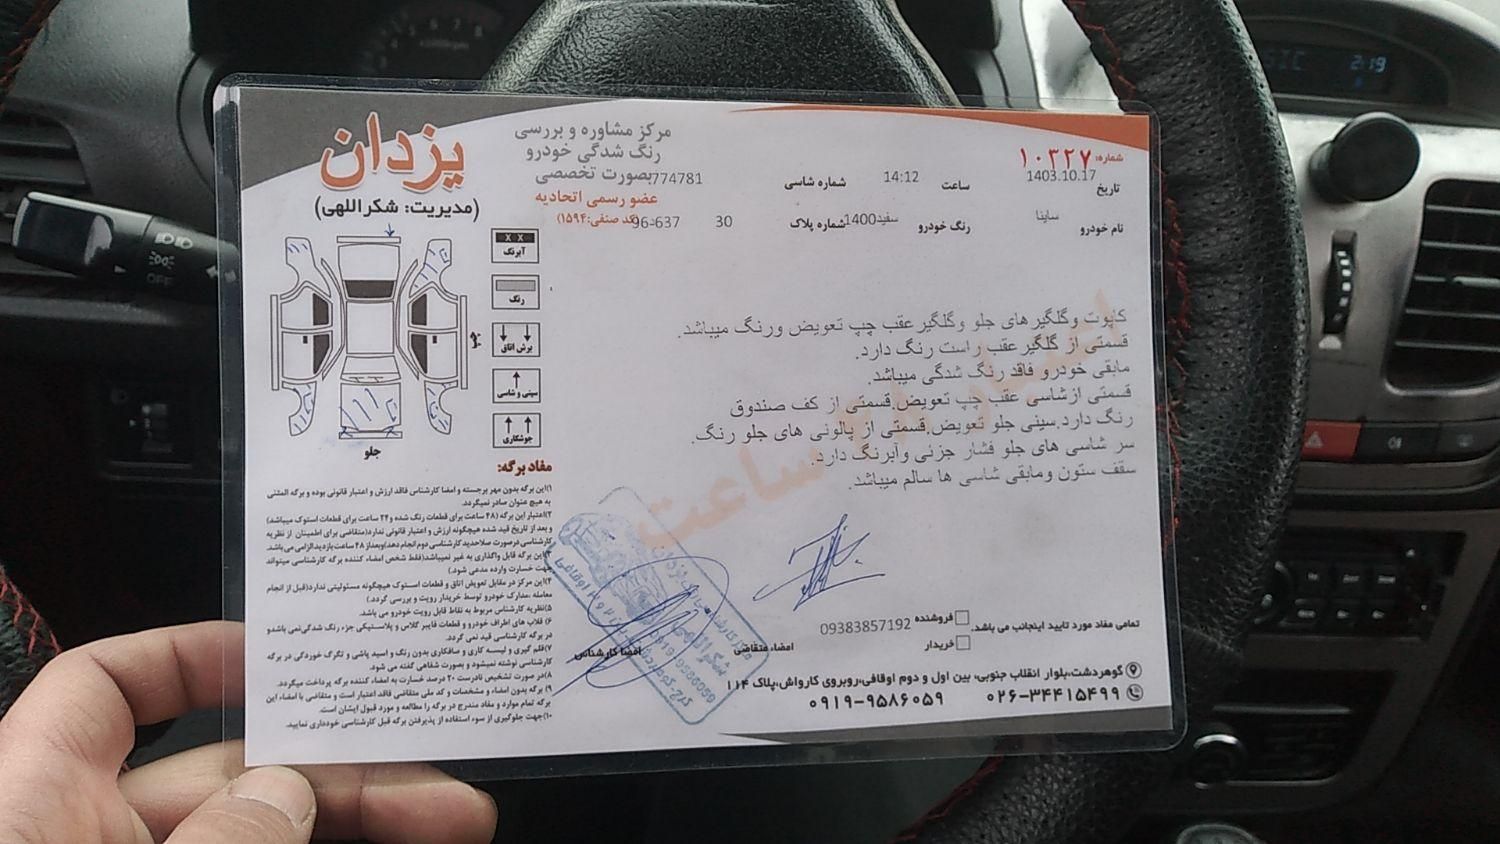 یزدان
(مدیریت: شکراللهی)
مرکز مشاوره و بررسی
رنگ شدگی خودرو
بصورت تخصصی
عضو رسمی اتحادیه
کد صنفی:۱۵۹۴)
شماره: ۱۰۳۲۷
تاریخ 1403.10.17
ساعت 14:12
شماره شاسی 774781
نام خودرو ساینا
رنگ خودرو سفید1400
شماره پلاک 30 96-637
آبرنگ
رنگ
برش اتاق
سینی و شاسی
جوشکاری
جلو
کاپوت وگلگیرهای جلو وگلگیرعقب چپ تعویض ورنگ میباشد.
قسمتی از گلگیرعقب راست رنگ دارد.
مابقی خودرو فاقد رنگ شدگی میباشد.
قسمتی ازشاسی عقب چپ تعویض.قسمتی از کف صندوق
رنگ دارد.سینی جلو تعویض.قسمتی از پالونی های جلو رنگ.
سر شاسی های جلو فشار جزنی وابرنگ دارد.
سقف ستون ومابقی شاسی ها سالم میباشد.
مفاد برگه:
۱)این برگه بدون مهر برجسته و امضا کارشناس فاقد ارزش و اعتبار قانونی بوده و برگه المثنی
به هیچ عنوان صادر نمیگردد.
۲)اعتبار این برگه (۴۸ ساعت برای قطعات رنگ شده و۲۴ ساعت برای قطعات استوک میباشد)
و بعد از تاریخ قید شده هیچگونه ارزش و اعتبار قانونی ندارد(متقاضی برای اطمینان از نظریه
کارشناسی درصورت صلاحدید کارشناسی دوم انجام دهد)وبعداز ۴۸ ساعت بازدیدالزامی می باشد.
۳)این برگه قابل واگذاری به غیر نمیباشد(فقط شخص امضاء کننده برگه کارشناسی میتواند
جهت خسارت وارده مدعی شود.)
۴)این مرکز در مقابل تعویض اتاق و قطعات استوک هیچگونه مسئولیتی ندارد(قبل از انجام
معامله، مدارک خودرو توسط خریدار رویت و بررسی گردد.)
۵)نظریه کارشناس مربوط به نقاط قابل رویت خودرو می باشد.
۶) قلاب های اطراف خودرو و قطعات فایبر گلاس و پلاستیکی جزء رنگ شدگی نمی باشدو
در برگه کارشناسی قید نمی گردد.
۷)قلم گیری و لیسه کاری و صافکاری بدون رنگ و اسید پاشی و تگرگ خوردگی در برگه
کارشناسی نوشته نمیشود و بصورت شفاهی گفته می شود.
۸)در صورت تشخیص نادرست ۲۰ درصد خسارت به امضاء کننده برگه پرداخت میگردد.
۹) برگه بدون امضاء و مشخصات و کد ملی متقاضی فاقد اعتبار است و متقاضی با امضاء این
برگه تمام موارد و مفاد مندرج در برگه را مطالعه و مورد قبول ایشان است.
۱۰)جهت جلوگیری از سوء استفاده از پذیرفتن برگه قبل کارشناسی خودداری نمایید.
تمامی مفاد مورد تایید اینجانب می باشد.
فروشنده
خریدار
09383857192
امضاء متقاضی
امضا کارشناس
گوهردشت، بلوار انقلاب جنوبی، بین اول و دوم اوقافی،روبروی کارواش،پلاک ۱۱۴
۰۲۶-۳۴۴۱۵۴۹۹ ۰۹۱۹-۹۵۸۶۰۵۹